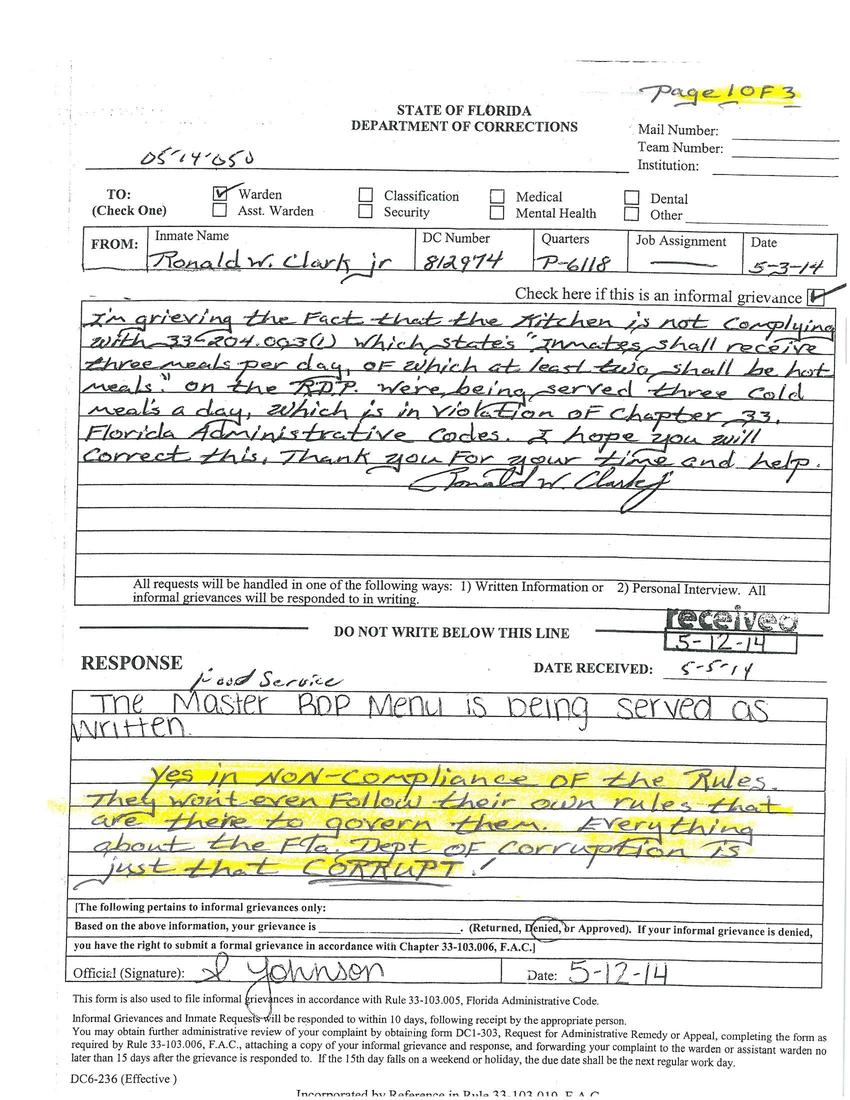 Page 1 OF 3
STATE OF FLORIDA
DEPARTMENT OF CORRECTIONS
Mail Number:
Team Number:
Institution:
05-14-050
TO:
(Check One)
Warden
Asst. Warden
Classification
Security
Medical
Mental Health
Dental
Other
FROM:
Inmate Name
DC Number
Quarters
Job Assignment
Date
Ronald W. Clark jr
812974
P-6118
5-3-14
Check here if this is an informal grievance
I'm grieving the Fact that the Kitchen is not Complying
with 33-204.003(1) which state's "Inmates shall receive
three meals per day, of which at least two shall be hot
meals" on the R.D.P. We're being served three cold
meal's a day, which is in violation of Chapter 33.
Florida Administrative Codes. I hope you will
correct this, Thank you For your time and help.
Ronald W. Clark jr
All requests will be handled in one of the following ways: 1) Written Information or 2) Personal Interview. All
informal grievances will be responded to in writing.
DO NOT WRITE BELOW THIS LINE
received
5-12-14
RESPONSE
Food Service
DATE RECEIVED:
5-5-14
The Master RDP Menu is being served as
written.
Yes in NON-Compliance OF the Rules.
They won't even Follow their own rules that
are there to govern them. Everything
about the Fla. Dept OF Corruption is
just that CORRUPT!
[The following pertains to informal grievances only:
Based on the above information, your grievance is ____________. (Returned, Denied, or Approved). If your informal grievance is denied,
you have the right to submit a formal grievance in accordance with Chapter 33-103.006, F.A.C.]
Official (Signature):
Johnson
Date: 5-12-14
This form is also used to file informal grievances in accordance with Rule 33-103.005, Florida Administrative Code.
Informal Grievances and Inmate Requests will be responded to within 10 days, following receipt by the appropriate person.
You may obtain further administrative review of your complaint by obtaining form DC1-303, Request for Administrative Remedy or Appeal, completing the form as
required by Rule 33-103.006, F.A.C., attaching a copy of your informal grievance and response, and forwarding your complaint to the warden or assistant warden no
later than 15 days after the grievance is responded to. If the 15th day falls on a weekend or holiday, the due date shall be the next regular work day.
DC6-236 (Effective )
Incorporated by Reference in Rule 33-103.019, F.A.C.